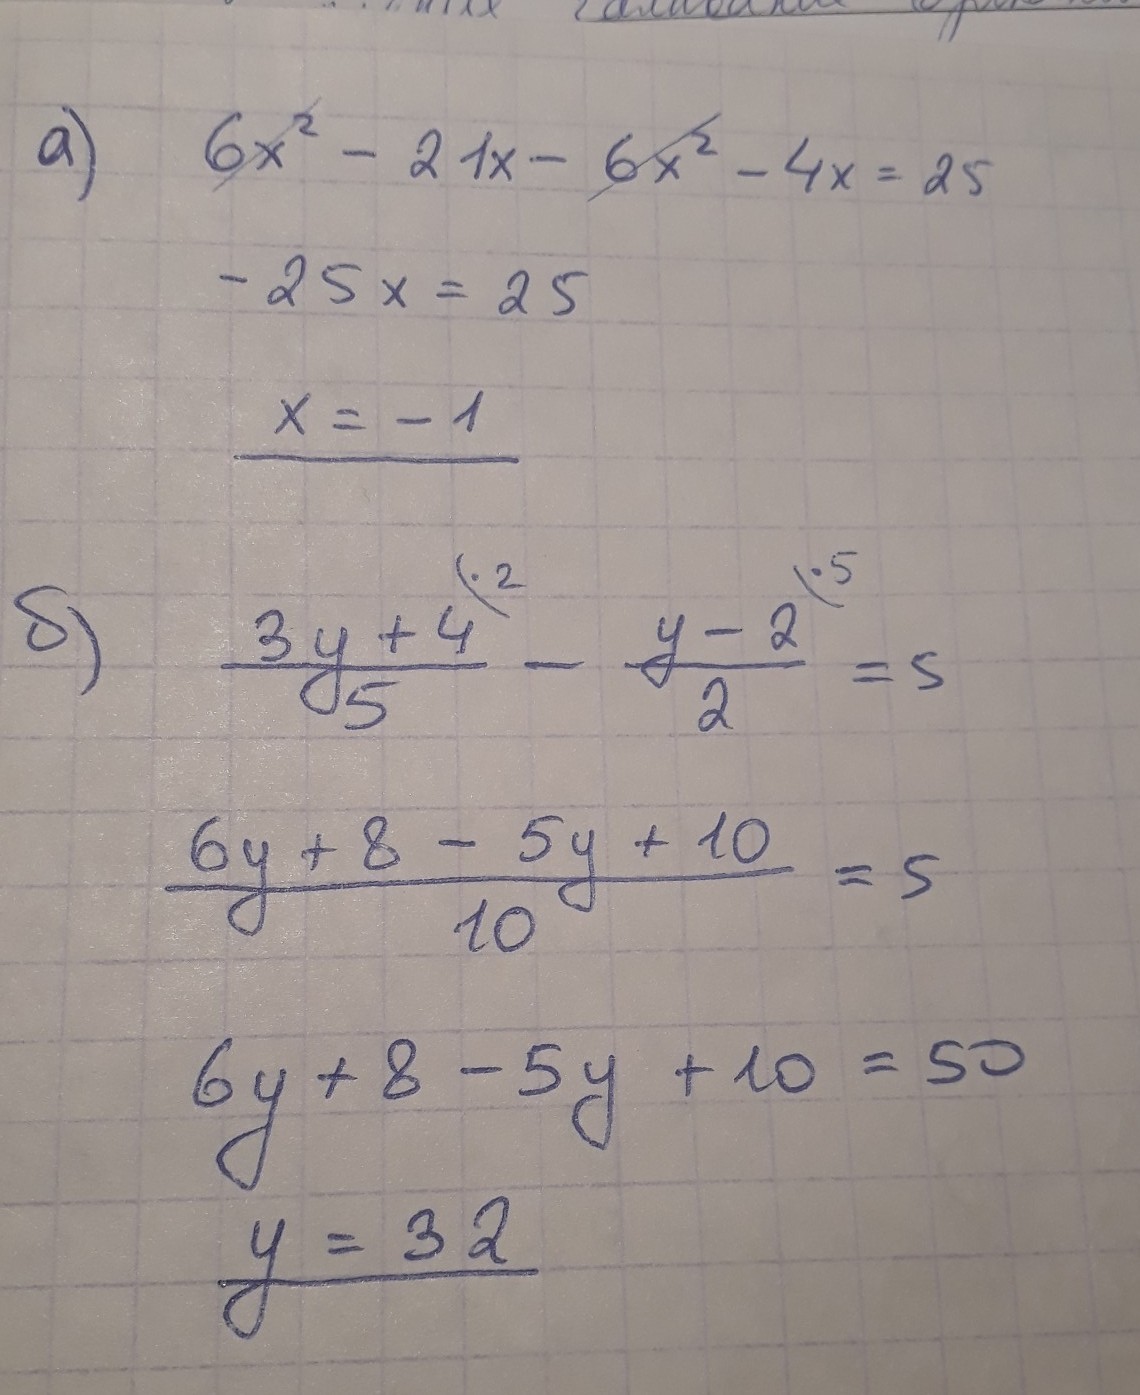 а) 6x² - 21x - 6x² - 4x = 25
-25x = 25
x = -1
б) (3y + 4)/5 - (y - 2)/2 = 5
·2 ·5
(6y + 8 - 5y + 10)/10 = 5
6y + 8 - 5y + 10 = 50
y = 32